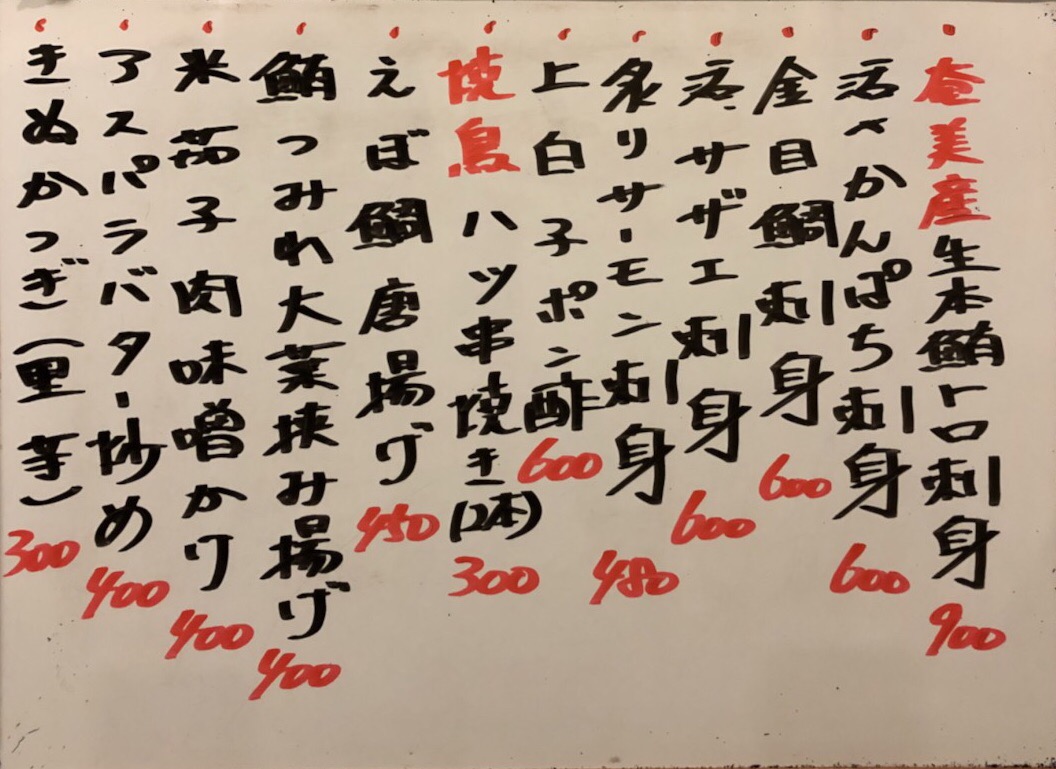 奄美産生本鮪トロ刺身 900
活〆かんぱち刺身 600
金目鯛刺身 600
活サザエ刺身 600
炙りサーモン刺身 480
上白子ポン酢 600
焼鳥ハツ串焼き(2本) 300
えぼ鯛唐揚げ 450
鮪つみれ大葉挟み揚げ 400
米茄子肉味噌かけ 400
アスパラバター炒め 400
きぬかつぎ(里芋) 300